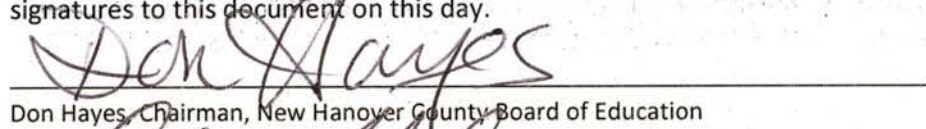 signatures to this document on this day.
Don Hayes
Don Hayes, Chairman, New Hanover County Board of Education